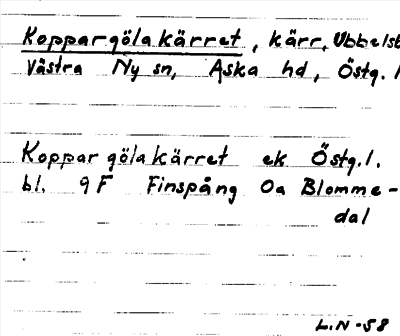 Koppargölakärret, kärr, Ubbelst
Västra Ny sn, Aska hd, Östg. l
Koppargölakärret ek Östg. l.
bl. 9F Finspång 0a Blomme-
dal
L.N -58